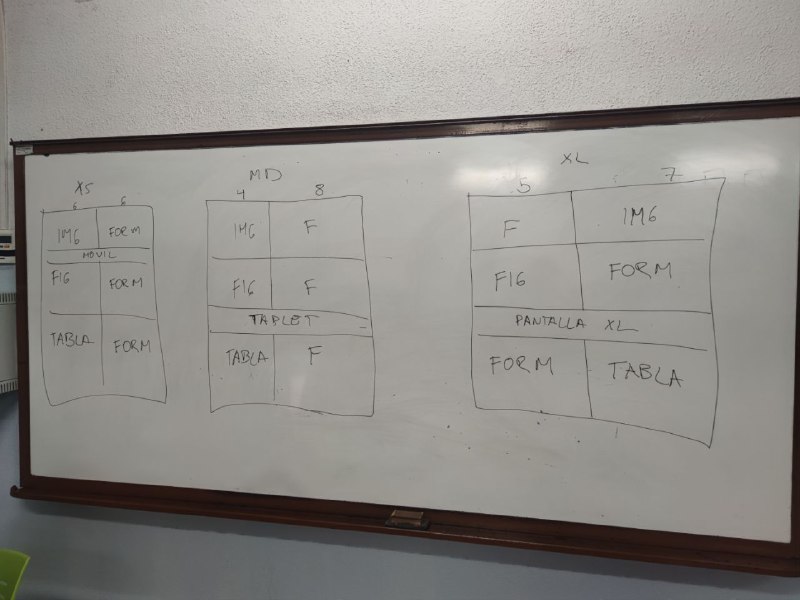 XS
6 6
IMG FORM
MOVIL
FIG FORM
TABLA FORM
MD
4 8
IMG F
FIG F
TABLET
TABLA F
XL
5 7
F IMG
FIG FORM
PANTALLA XL
FORM TABLA